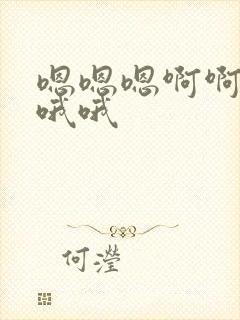 嗯嗯嗯啊啊
哦哦
何瀅